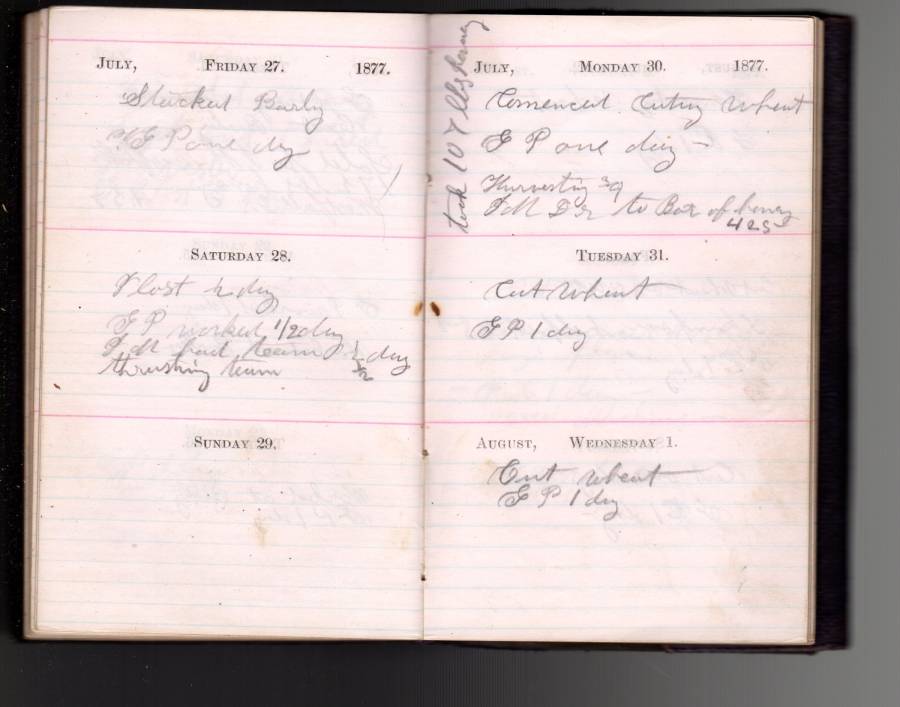 July, Friday 27. 1877.
Stacked Barly
E P one day
Saturday 28.
I lost ½ day
E P worked 1/2 day
I M had team ½ day
thrushing team
Sunday 29.
took 107 lbs honey
July, Monday 30. 1877.
Comenced Cuting wheat
E P one day
Harvesting
I M Dr to Box of honey
425
Tuesday 31.
Cut wheat
E P 1 day
August, Wednesday 1.
Cut wheat
E P 1 day